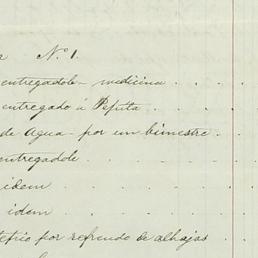 Nº 1.
entregadole medicina
entregado á Pepita
de Agua por un bimestre
entregadole
idem
idem
por refrendo de alhajas